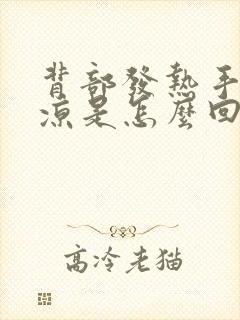 背部發熱手
涼是怎麼回
高冷老猫